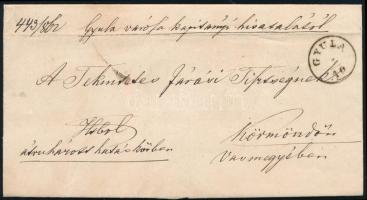 443/862 Gyula város kapitányi hivatalától
GYULA
A Tekintetes Járási Tisztségnek
Hibol
átruházott hatáskörben
Körmöndön
Vasmegyében